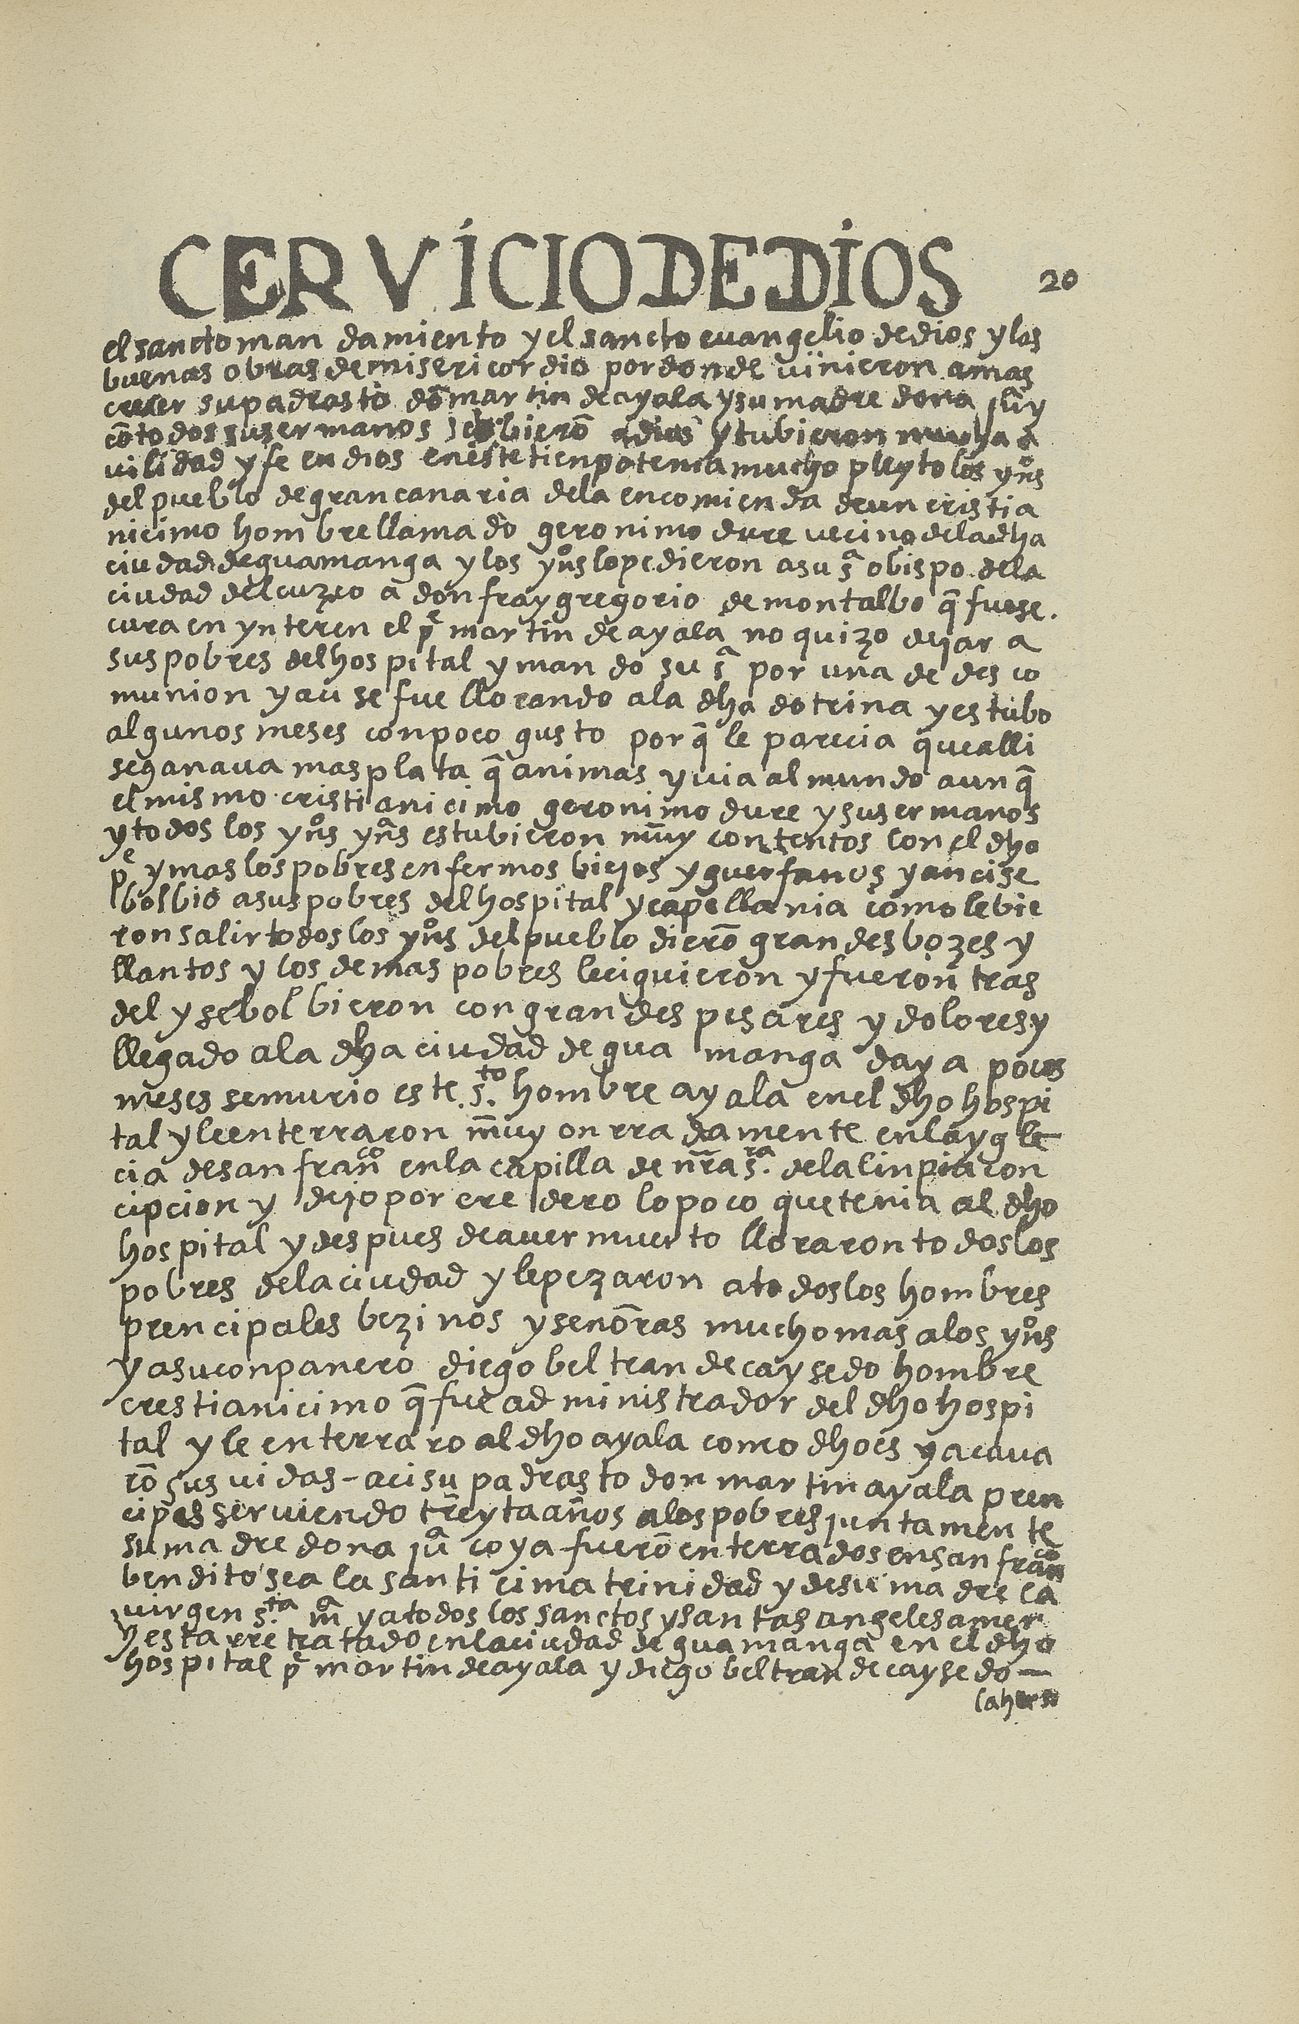 CERVICIO DE DIOS
20
el sancto mandamiento y el sancto euangelio de dios y los
buenas obras de misericordia por donde uinieron a mas
creer su padrasto dō martin de ayala y su madre dona
cō todos sus ermanos se bolbierō a dios y tubieron mucha
uilidad y fe en dios en este tienpo tenia mucho pleyto los yn̊s
del pueblo de gran canaria de la encomienda de un cristia
nicimo hombre llamado geronimo dure uecino de la dha
ciudad de guamanga y los yn̊s lo pedieron a su sª obispo de la
ciudad del cuzco a don fray gregorio de montalbo q̄ fuese
cura en ynteren el pe martin de ayala no quizo dejar a
sus pobres del hospital y mando su sª por una de desco
munion y aci se fue llorando a la dha dotrina y estubo
algunos meses con poco gusto por q̄ le parecia que alli
se ganaua mas plata q̄ animas y uia al mundo aunq̄
el mismo cristianicimo geronimo dure y sus ermanos
y todos los yn̊s yn̄s estubieron muy contentos con el dho
pe y mas los pobres enfermos biejos y guerfanos y anci se
bolbio a sus pobres del hospital y capellania como le bie
ron salir todos los yn̊s del pueblo dierō grandes bozes y
llantos y los demas pobres le ciquieron y fueron tras
del y se bolbieron con grandes pesares y dolores y
llegado a la dha ciudad de guamanga day a pocos
meses se murio este s.to hombre ayala en el dho hospi
tal y le enterraron muy onrradamente en la ygle
cia de san franco en la capilla de nr̄a s.ra de la linpia con
cipcion y dejo por eredero lo poco que tenia al dho
hospital y despues de auer muerto lloraron todos los
pobres de la ciudad y le pezaron a todos los hombres
prencipales bezinos y señoras mucho mas a los yn̊s
y a su conpanero diego beltran de caysedo hombre
crestianicimo q̄ fue administrador del dho hospi
tal y le enterraro al dho ayala como dho es y acaua
rō sus uidas - aci su padrasto don martin ayala pren
cipes seruiendo treyta años a los pobres juntamente
su madre dona juª coya fuerō enterrados en san franco
bendito sea la santicima trinidad y de su madre la
uirgen s.ta mª y a todos los sanctos y santas angeles amen
y esta rretratado en la ciudad de guamanga en el dho
hospital pe martin de ayala y diego beltran de caysedo —